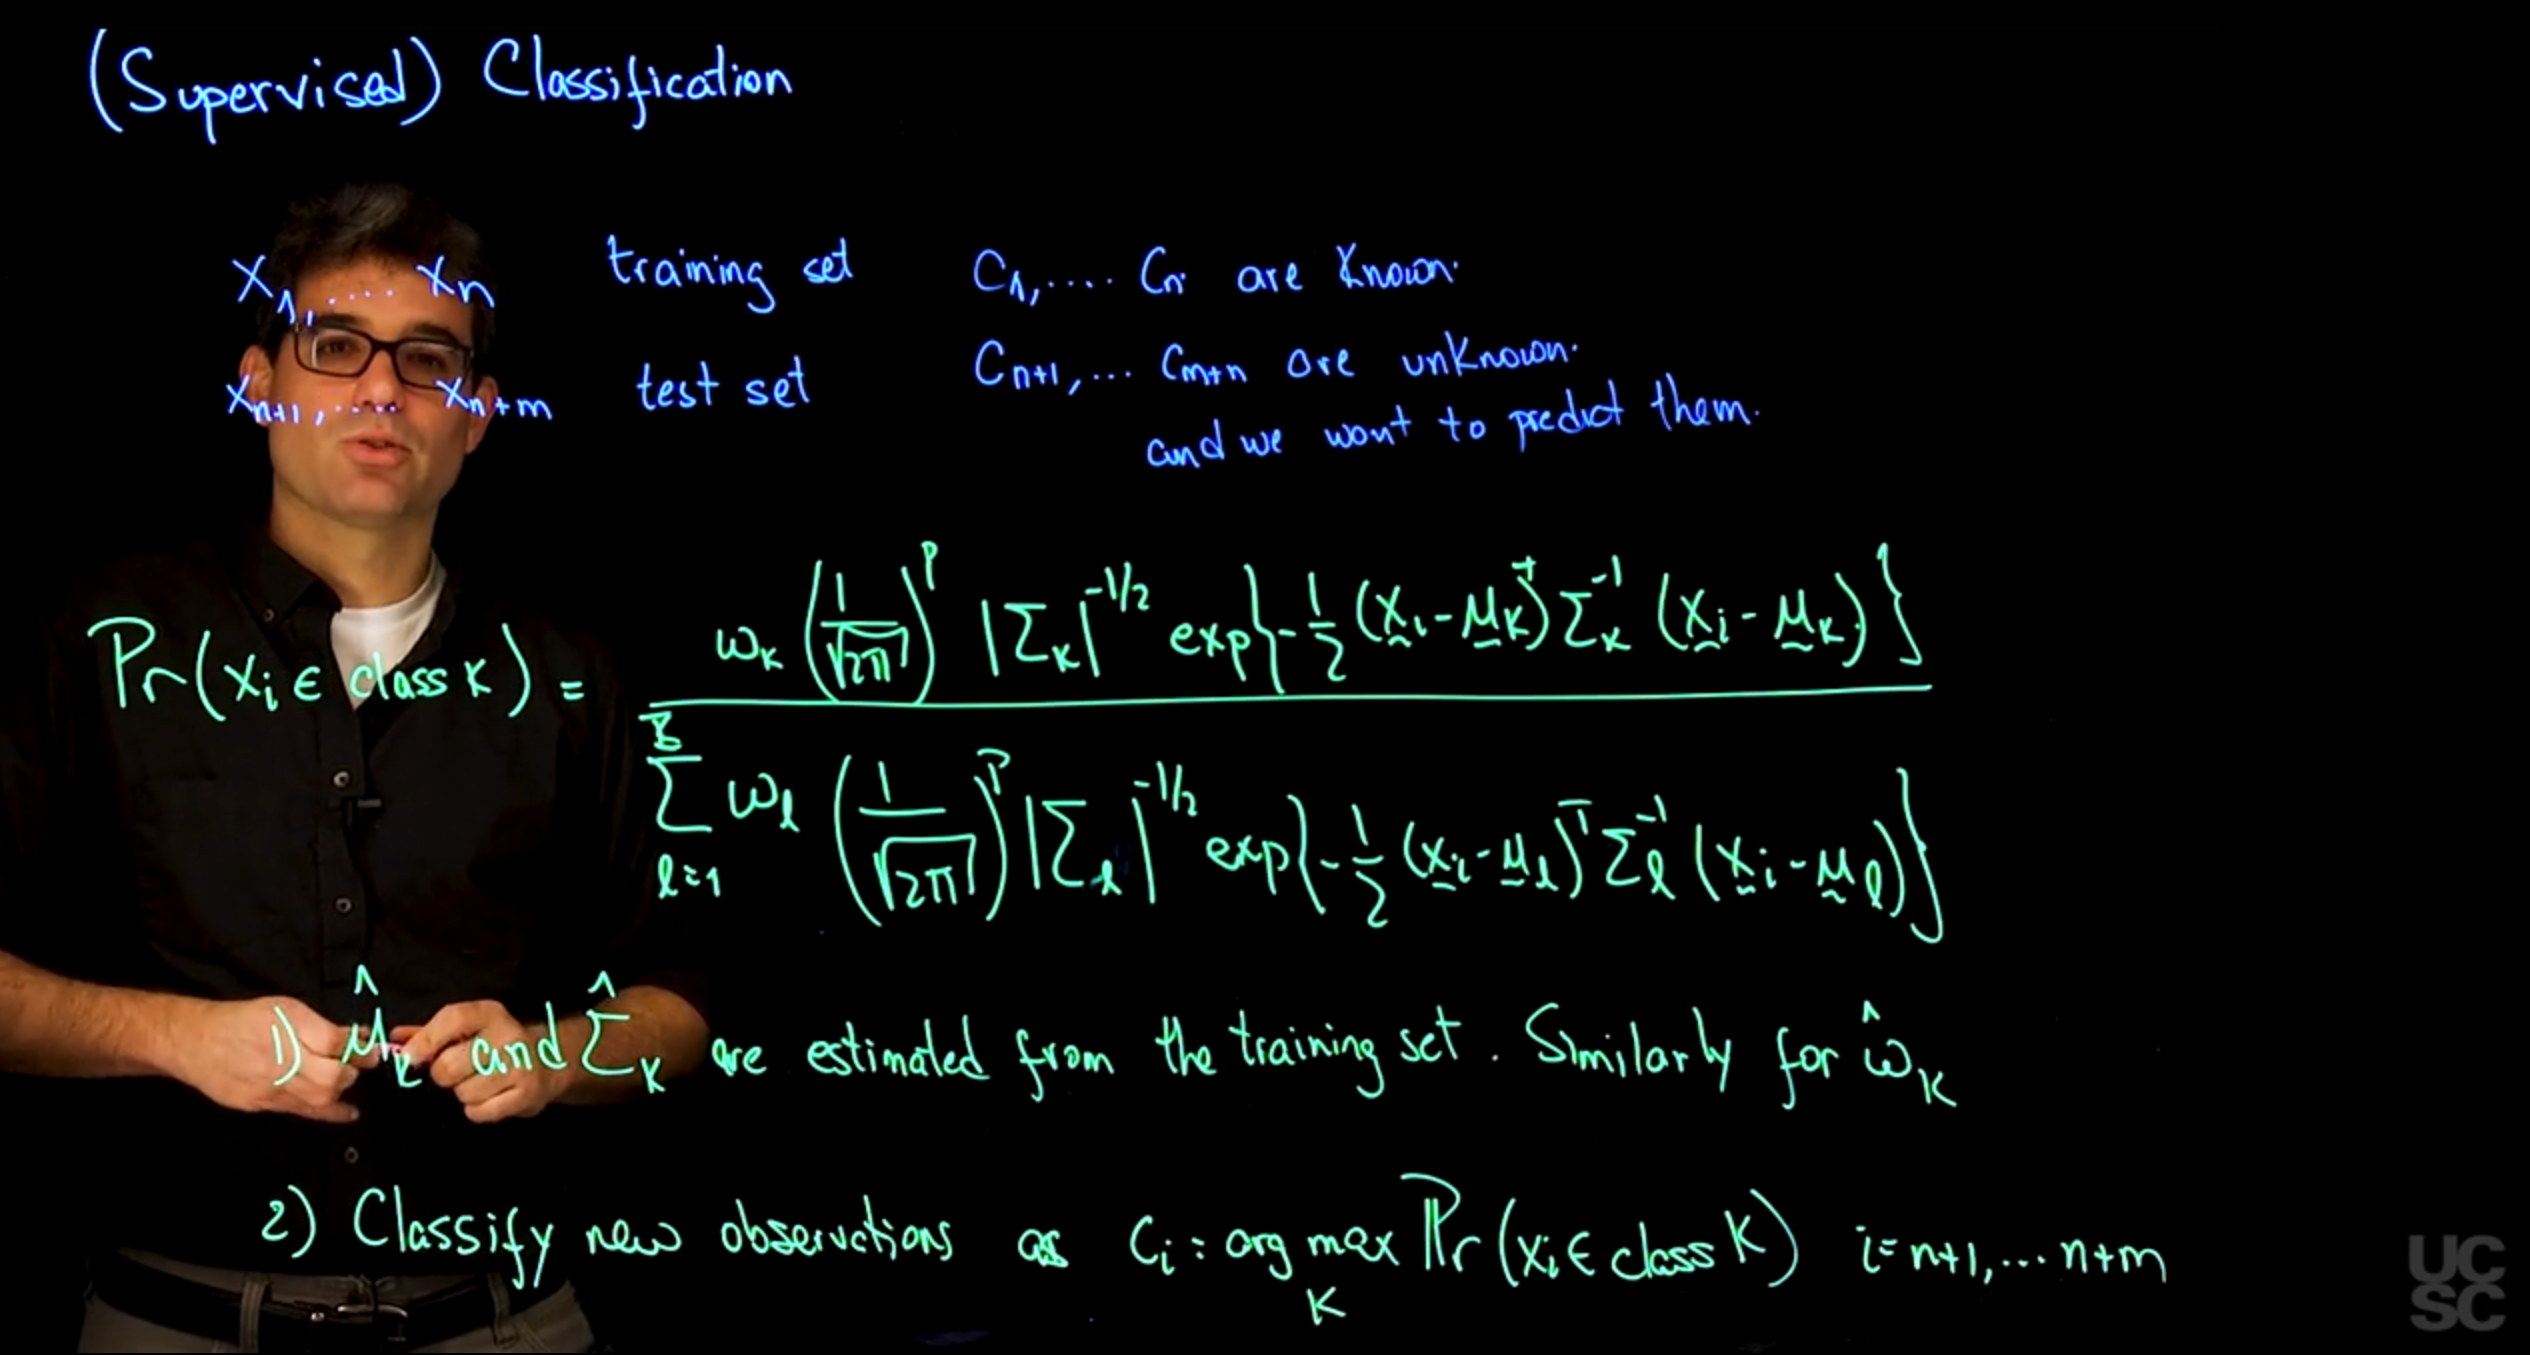 (Supervised) Classification
x₁, .... xₙ training set C₁, .... Cₙ are known.
xₙ₊₁, ..... xₙ₊ₘ test set Cₙ₊₁, ... Cₘ₊ₙ are unknown.
and we want to predict them.
Pr(xᵢ ∈ class k) = ω_k (1/√2π)^p |Σ_k|^{-1/2} exp{-1/2 (x̰ᵢ - μ̰_k)^T Σ_k^{-1} (x̰ᵢ - μ̰_k)}
Σ_{l=1}^{K} ω_l (1/√2π)^p |Σ_l|^{-1/2} exp{-1/2 (x̰ᵢ - μ̰_l)^T Σ_l^{-1} (x̰ᵢ - μ̰_l)}
1) μ̂_k and Σ̂_k are estimated from the training set. Similarly for ω̂_k
2) Classify new observations as Cᵢ = arg max_K Pr(xᵢ ∈ class K) i = n+1, ... n+m
UC
SC